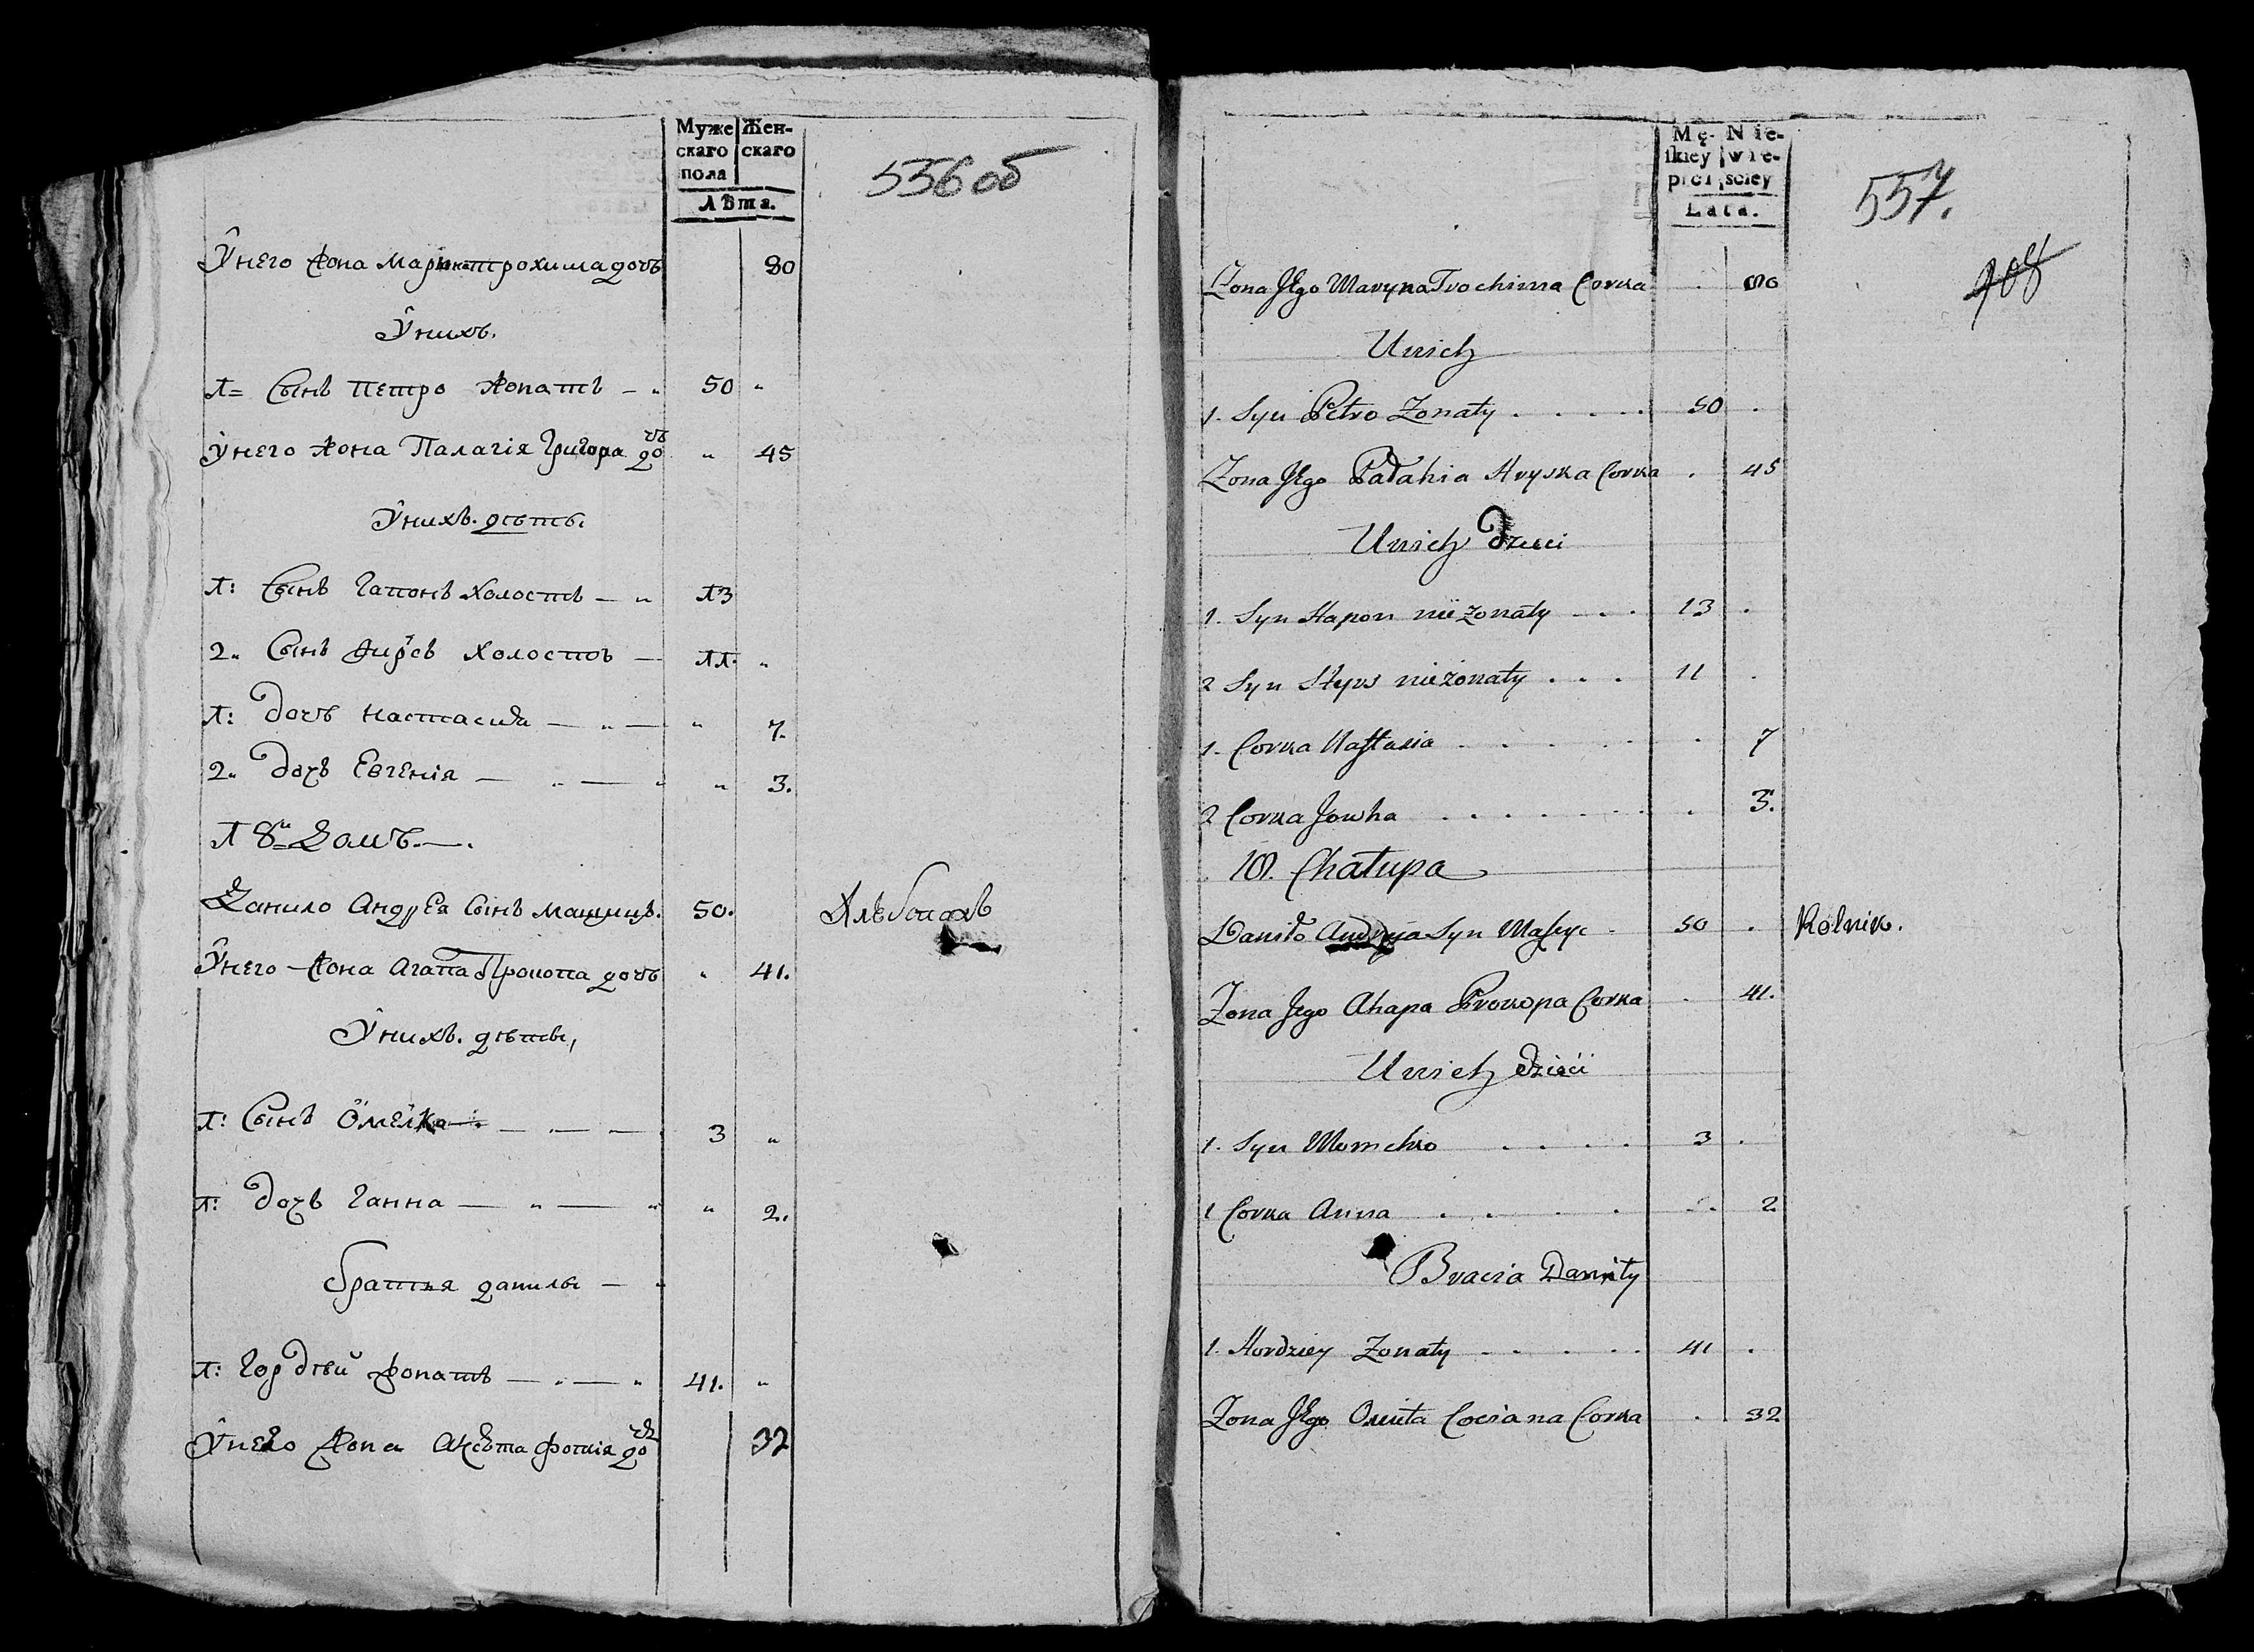 Муже Жен-
скаго скаго
пола
Лѣта.
556 об
Унего жона Марина трохима дочь 80
Унихъ.
1= Сынъ петро жонатъ — „ 50 „
Унего жона Палагія Григора дочь „ 45
Унихъ. дѣти.
1: Сынъ Гапонъ холостъ — „ 13
2„ Сынъ холостъ — 11. „
1: дочь настасия — „ — „ 7.
2„ дочь Евгенія — „ — „ „ 3.
18й Домъ. —.
Данило Андрея Сынъ мащицъ. 50. Хлѣбопахъ
Унего — жона Агапа Прокопа дочь „ 41.
Унихъ. дѣти,
1: Сынъ Омелко — — „ — — 3 „
1: дочь Ганна — „ — „ „ 2.
братья данилы — „
1: Гордѣй жонатъ — „ — „ 41. „
Унего жона фотия до 32
Mę- Nie-
skiey wie-
płci sciey
Lata.
557.
908
Zona Jego Maryna Trochima Corka . 80
Unich
1. Syn Petro Zonaty . . . . . 50 .
Zona Jego Pałahia Hryska Corka . 45
Unich dzieci
1. Syn Hapon nieżonaty - - . 13 .
2 Syn nieżonaty . . . 11 .
1. Corka Nastasia . . . . . . 7
2 Corka Jowha . . . . . . . 3.
18. Chałupa
Daniło Andreja Syn Maszyc . 50 . Rolnik.
Zona Jego Ahapa Prokopa Corka . 41.
Unich dzieci
1. Syn . . . . 3 .
1 Corka Anna . . . . . . 2
Bracia Daniły
1. Hordziey Zonaty - - . . . 41 .
Zona Jego Corka . 32